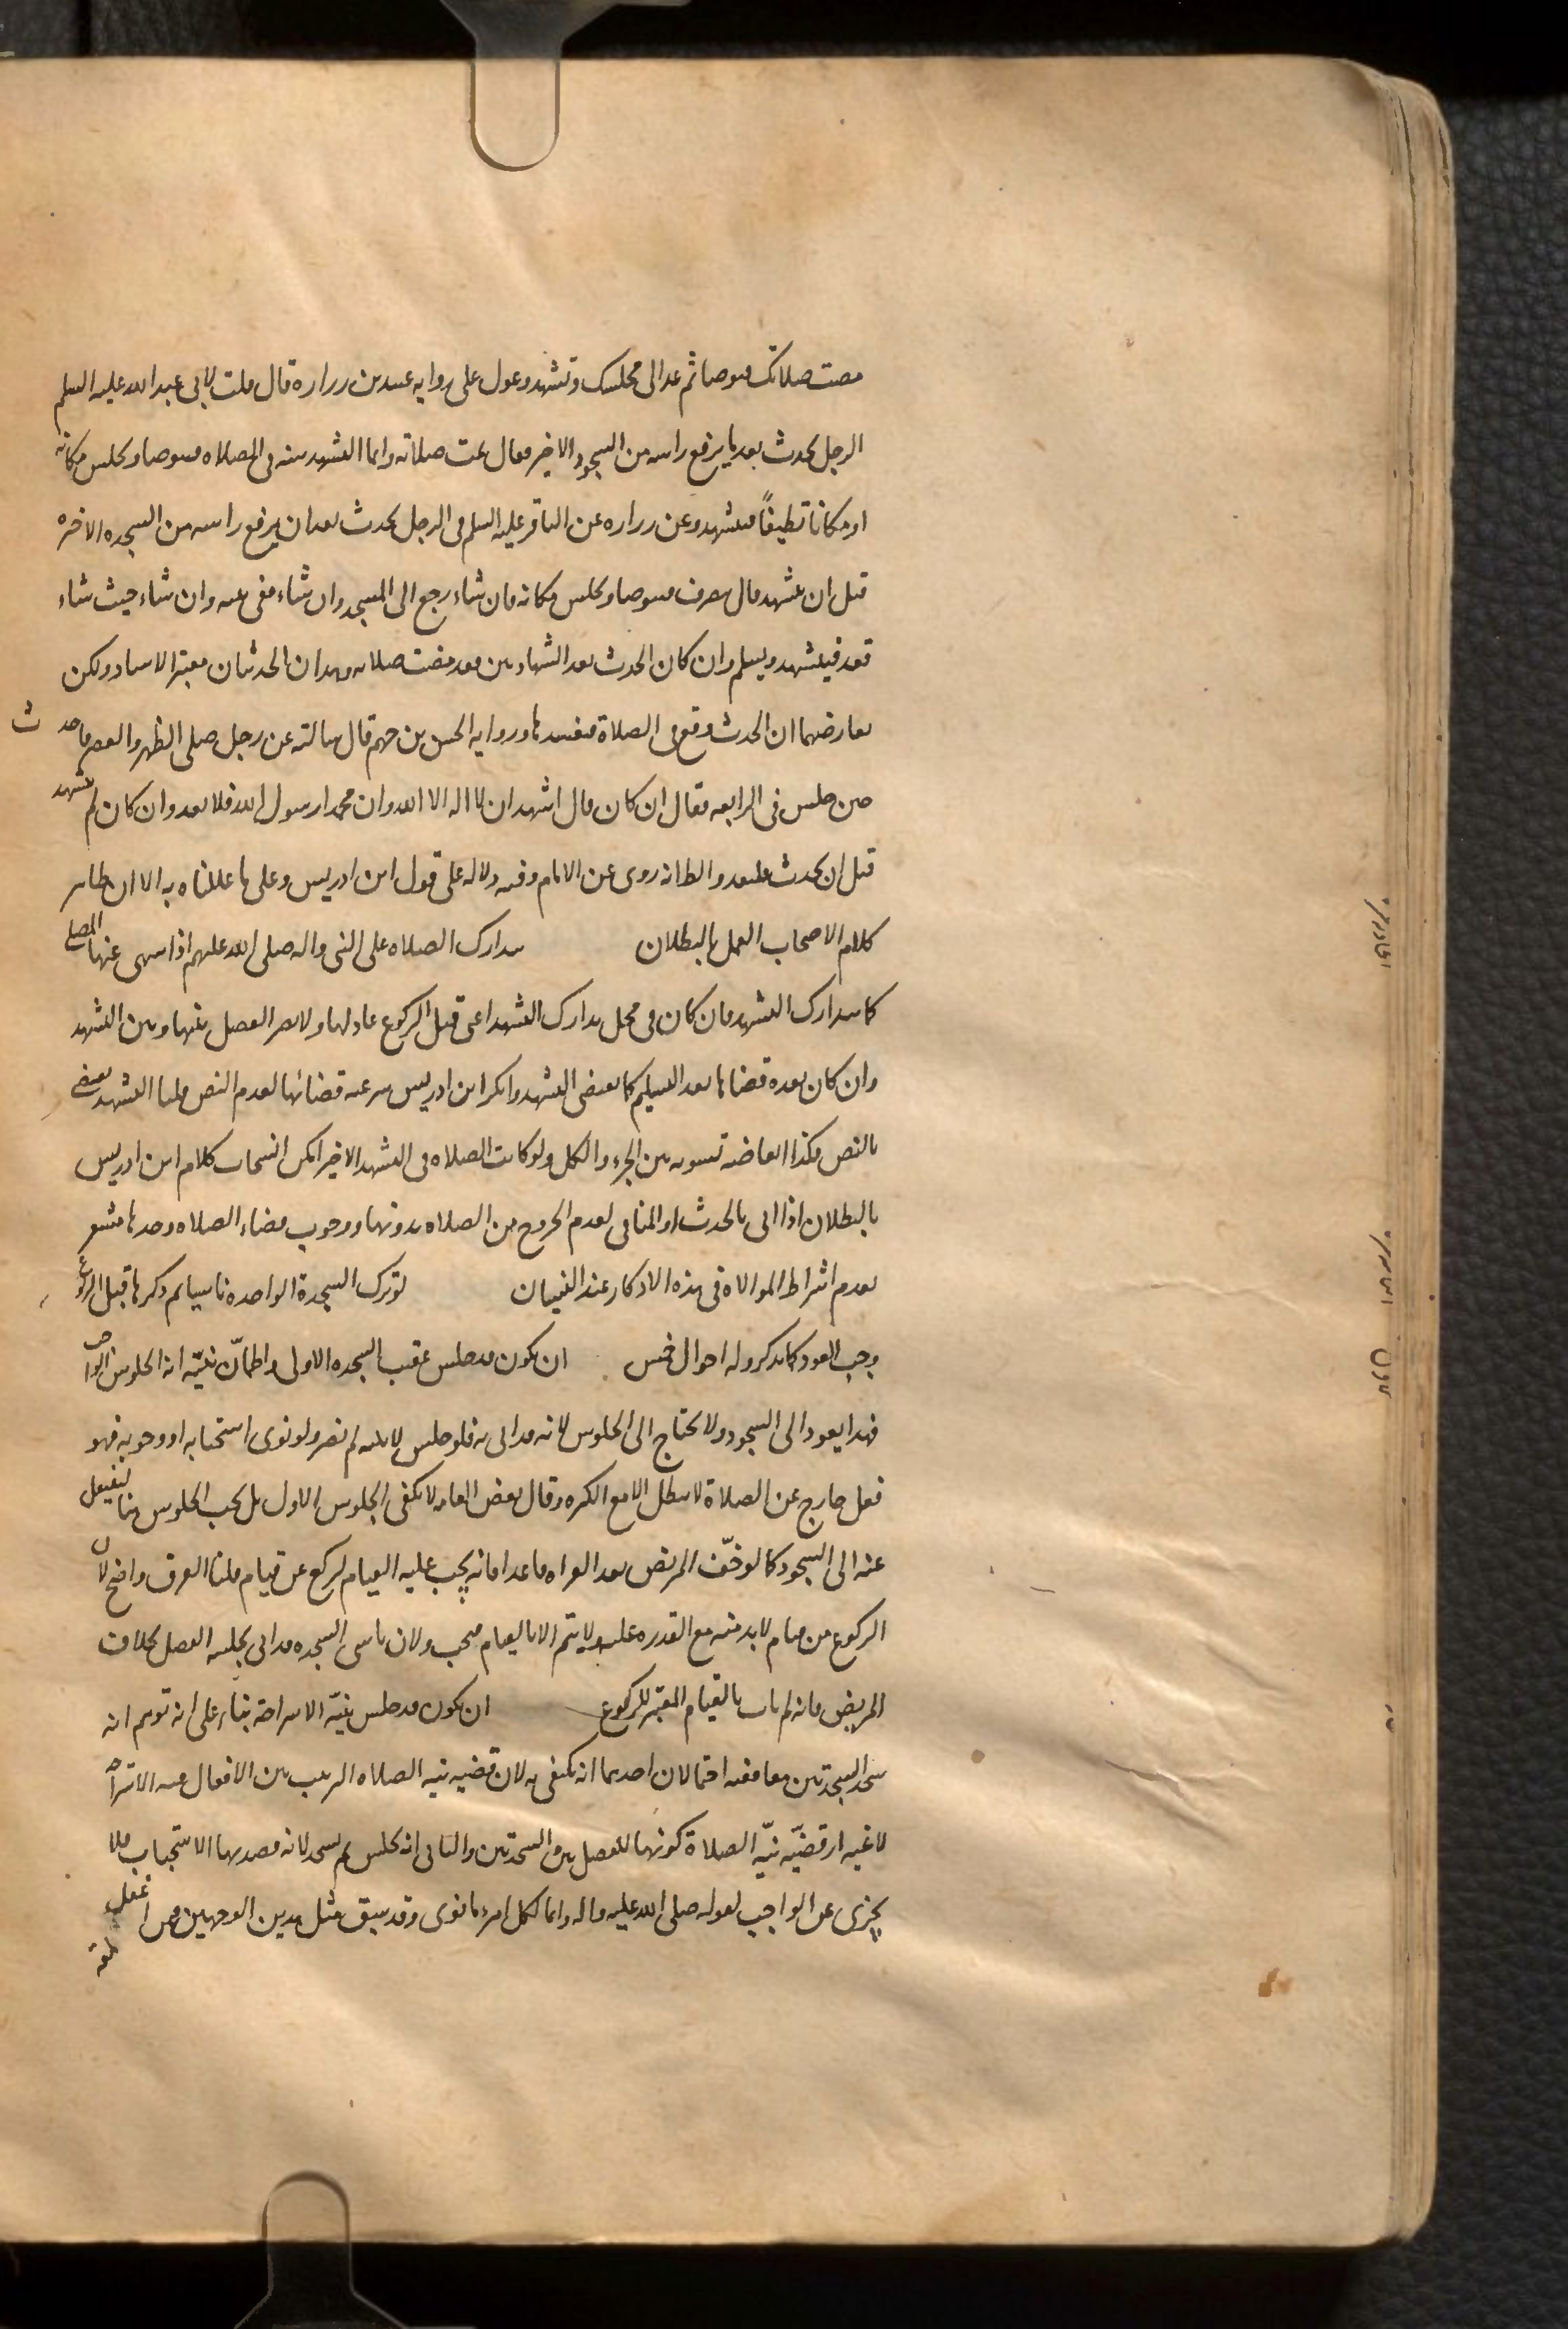 مضت صلاتك فتوضا ثم عد الى مجلسك وتشهد وعول على روايه عبيد بن زراره قال قلت لابى عبد الله عليه السلم
الرجل يحدث بعد ما يرفع راسه من السجود الاخير فقال تمت صلاته وانما التشهد سنه فى الصلاه فيتوضا ويجلس مكانه
او مكانا نظيفاً فيتشهد وعن زراره عن الباقر عليه السلم فى الرجل يحدث بعد ان يرفع راسه من السجده الاخيره
قبل ان يتشهد قال ينصرف فيتوضا ويجلس مكانه فان شاء رجع الى المسجد وان شاء ففى بيته وان شاء حيث شاء
قعد فيتشهد ويسلم وان كان الحدث بعد الشهادتين فقد مضت صلاته وهذان الحديثان معتبرا الاسناد ولكن
يعارضهما ان الحدث وقع فى الصلاة فيفسدها وروايه الحسن بن جهم قال سالته عن رجل صلى الظهر والعصر فاحدث
حين جلس فى الرابعه فقال ان كان قال اشهد ان لا اله الا الله وان محمدا رسول الله فلا يعد وان كان لم يتشهد
قبل ان يحدث فليعد والظانه روى عن الامام وفيه دلاله على قول ابن ادريس وعلى ما عللناه به الا ان ظاهر
كلام الاصحاب العمل بالبطلان يتدارك الصلاه على النبى واله صلى الله عليهم اذا سهى عنها المصلى
كما يتدارك التشهد فان كان فى محل تدارك التشهد اعنى قبل الركوع عاد لها ولا يضر الفصل بينها وبين التشهد
وان كان بعده قضاها بعد التسليم كما يقضى التشهد وانكر ابن ادريس شرعيه قضائها لعدم النص قلنا التشهد يقضى
بالنص فكذا ابعاضه تسويه بين الجزء والكل ولو كانت الصلاه فى التشهد الاخير امكن انسحاب كلام ابن ادريس
بالبطلان اذا اتى بالحدث او المنافى لعدم الخروج من الصلاه بدونها ووجوب قضاء الصلاه وحدها مشعر
بعدم اشتراط الموالاه فى هذه الاذكار عند النسيان لو ترك السجدة الواحده ناسيا ثم ذكرها قبل الركوع
وجب العود كما يذكر وله احوال خمس ان يكون قد جلس عقيب السجده الاولى واطمأنّ بنيّه انه الجلوس الواجب
فهذا يعود الى السجود ولا يحتاج الى الجلوس لانه قد اتى به فلو جلس لا بنيه لم يضر ولو نوى استحبابه او وجوبه فهو
فعل خارج عن الصلاة لا يبطل الا مع الكثره وقال بعض العامه لا يكفى الجلوس الاول بل يجب الجلوس هنا لينتقل
عنه الى السجود كما لو خفّ المريض بعد القراه قاعدا فانه يجب عليه القيام ليركع عن قيام قلنا الفرق واضح لان
الركوع من قيام لا بد منه مع القدره عليه ولا يتم الا بالقيام فيجب ولان ناسى السجده قد اتى بجلسه الفصل بخلاف
المريض فانه لم يات بالقيام المعتبر للركوع ان يكون قد جلس بنيّه الاستراحة بناء على انه توهم انه
سجد السجدتين معا ففيه احتمالان احدهما انه يكتفى به لان قضيه نيه الصلاه الترتيب بين الافعال فنيه الاستراحه
لاغيه اذ قضيّه نيّه الصلاة كونها للفصل بين السجدتين والثانى انه يجلس ثم يسجد لانه قصد بها الاستحباب فلا
يجزى عن الواجب لقوله صلى الله عليه واله وانما لكل امرء ما نوى وقد سبق مثل هذين الوجهين فيمن اغفل
لمعه